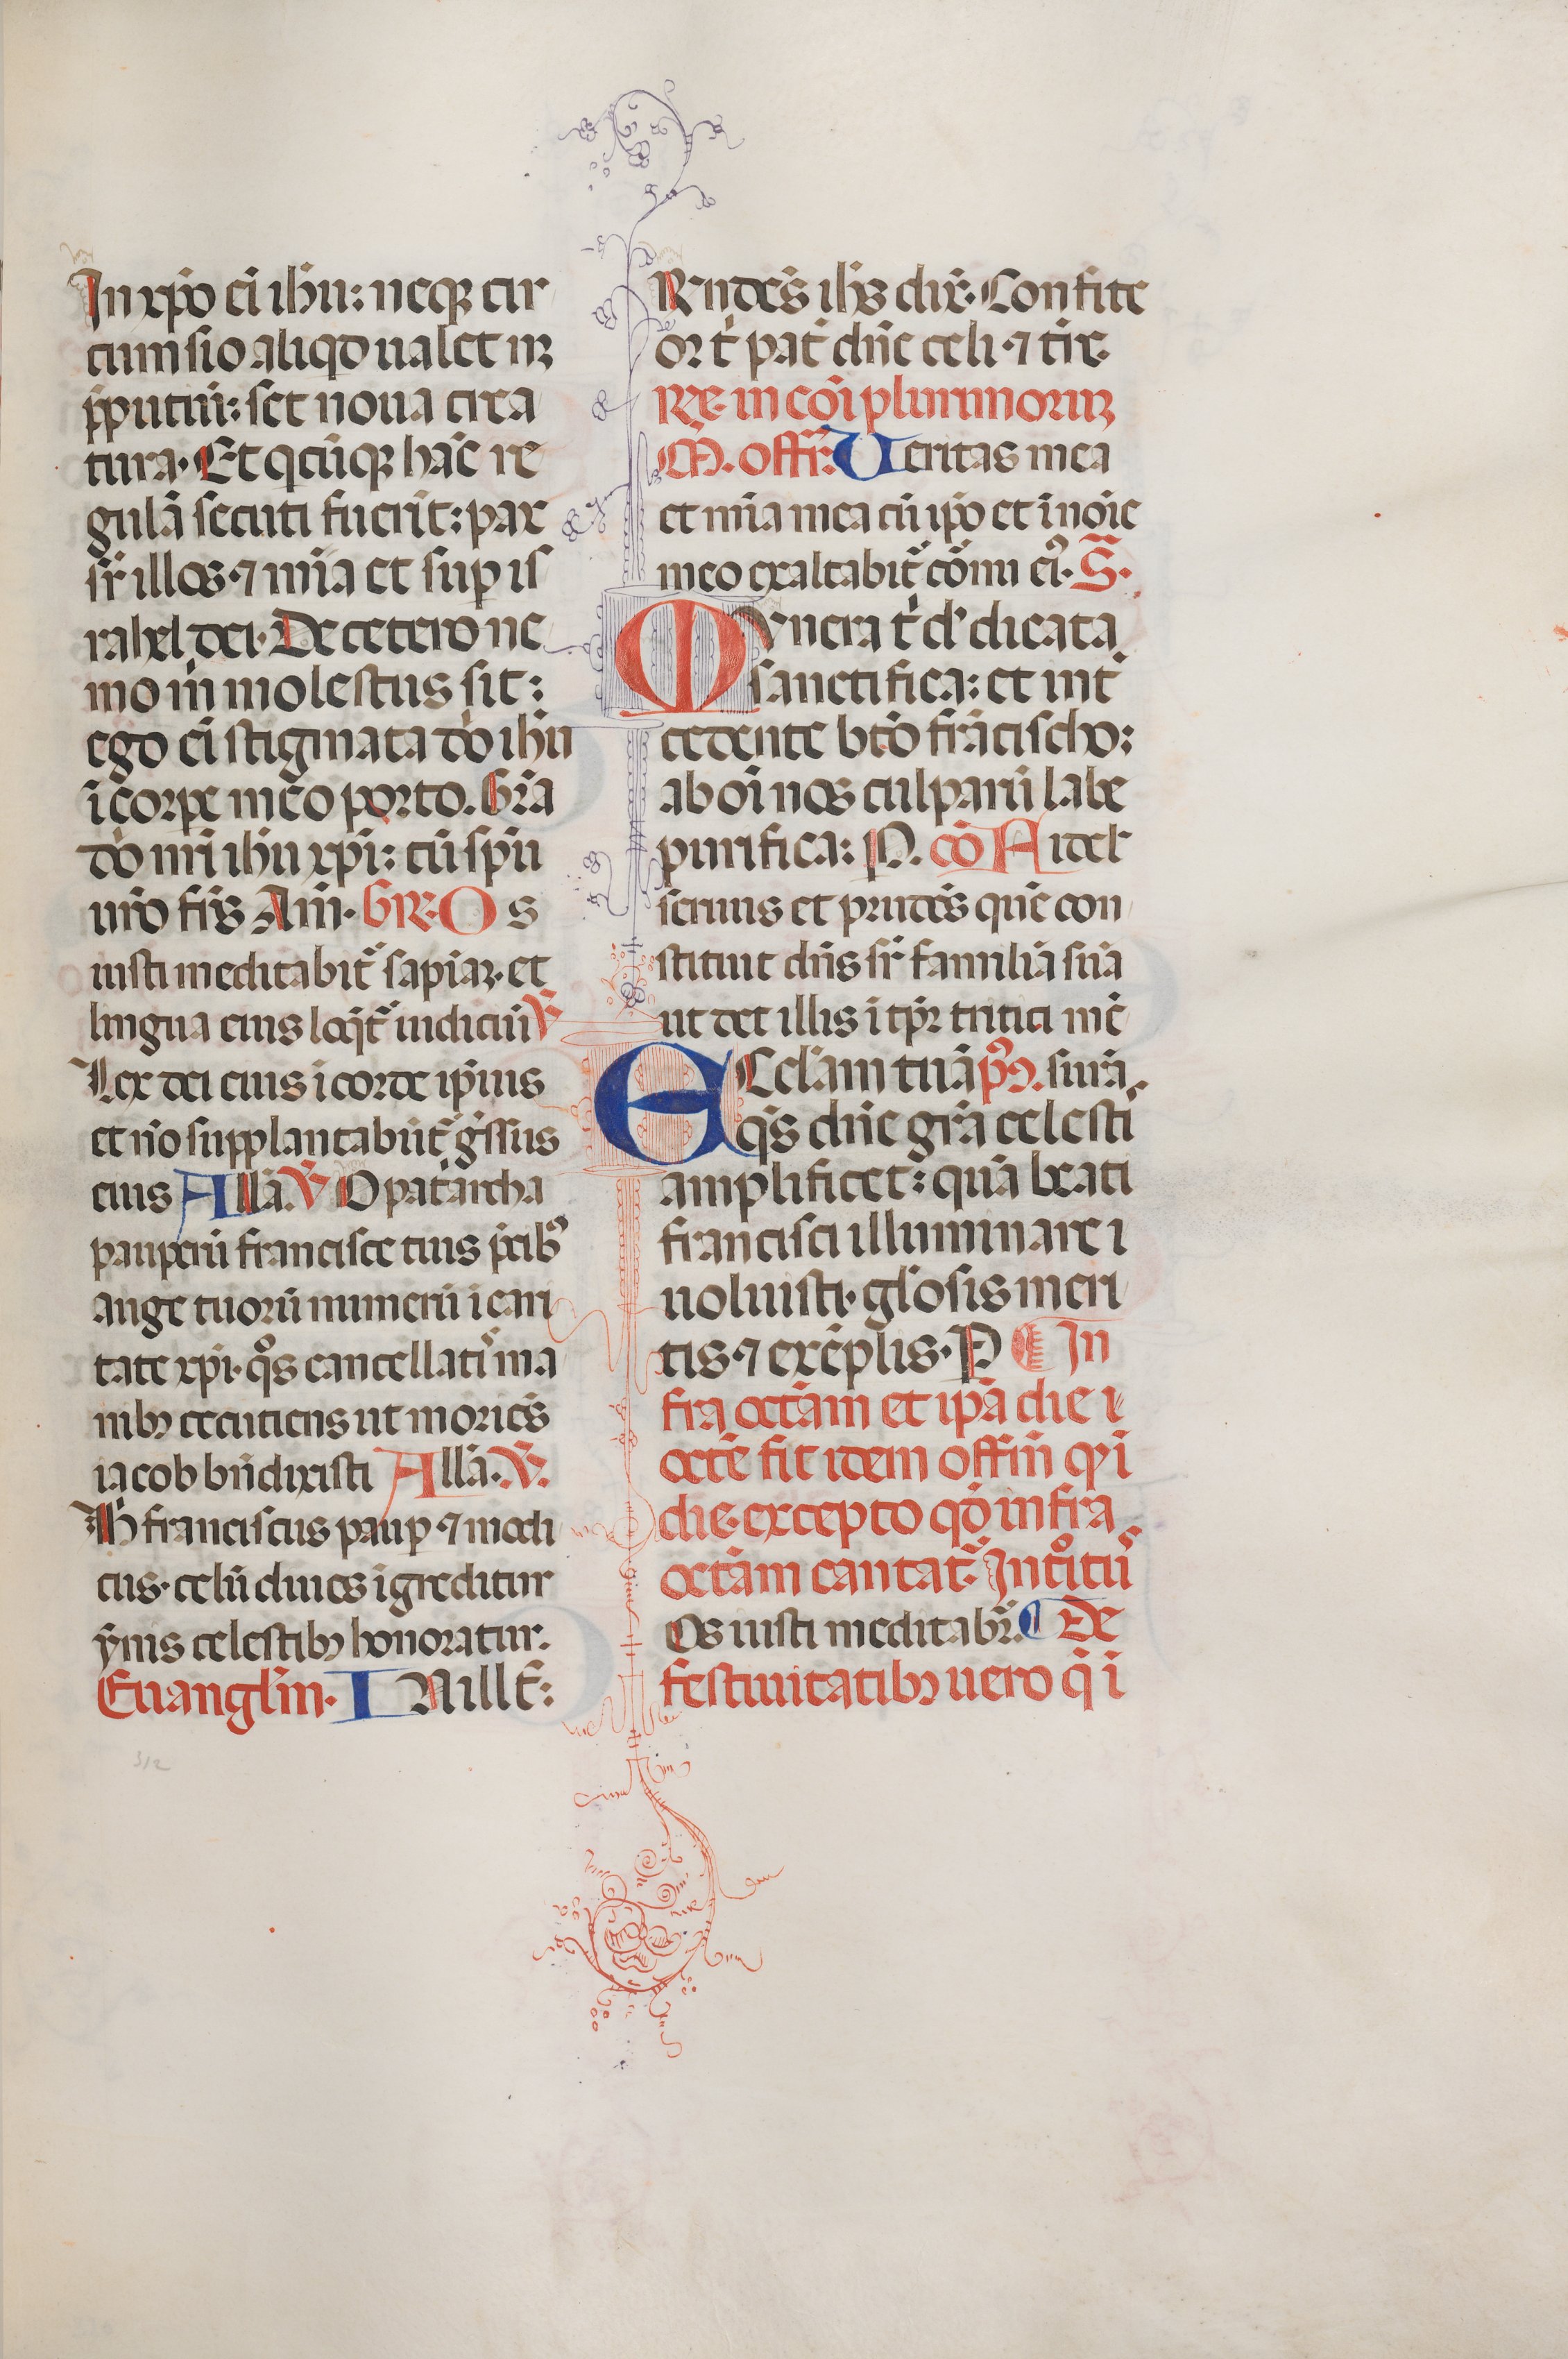 In xp̄o ei ihū: neqꝫ cir
cumsio aliqd ualet nꝫ
p̄putiū: set noua crea
tura. Et qcūqꝫ hāc re
gulā secuti fuerīt: pax
sr̄ illos. ⁊ mīa et sup is
rahel dei. De cetero ne
mo m̄ molestus sit:
ego ei̅ stigmata dō ihū
ī corpe meo porto. Gr̄a
dō nr̄i ihū xp̄i: cū sp̄u
ur̄o fr̄s Am̄. GR. Os
iusti meditabit̄ sapiāꝫ. et
lingua eius loq̄t̄ iudiciū ℣
Lex dei eius ī corde ip̄ius
et nō supplantabūt̄ gr̄ssus
eius Allā. ℣ O pat̄archa
pauperū francisce tuis p̄cibꝰ
auge tuorū numerū ī cari
tate xp̄i. qͦs cancellatī ma
nibꝫ cecutiens ut moriēs
iacob bn̄dixisti Allā. ℣.
Ħ franciscus paup ⁊ modi
cus. celū diues īgreditur
ym̄s celestibꝫ honoratur.
Euangl̄m. I N ill t̄:
Rn̄dēs ihs̄ dix̄. Confite
or t̄ pat̄ dn̄e celi. ⁊ tr̄e.
Rē. in cōi plurimoruꝫ
M̄. offr̄. Ueritas mea
et mīa mea cū ip̄o et ī noīe
meo exaltabit̄ cōrnu eiꝰ. S.
Munera t̄ d̄ dicata
sanctifica: et int̄
cedente btō frācischo:
ab oī nos culparū labe
purifica: P. cō Fidel̄
seruus et prudēs quē con
stituit dn̄s sr̄ familiā suā
ut det illis ī tp̄r tritici mē
Eccl̄am tuā pꝰ ɔ̄. surā.
qs̄ dn̄e gr̄a celesti
amplificet: quā beati
francisci illuminare
uoluisti. gl̄osis meri
tis. ⁊ exēplis. P ¶ In
fra octām et ip̄a die ī
octē fit idem offm̄ qd̄ ī
die. excepto qd̄ infra
octām cantat̄ Introitū
Os iusti meditabr̄. ¶ De
festiuitatibꝫ uero q̄ ī